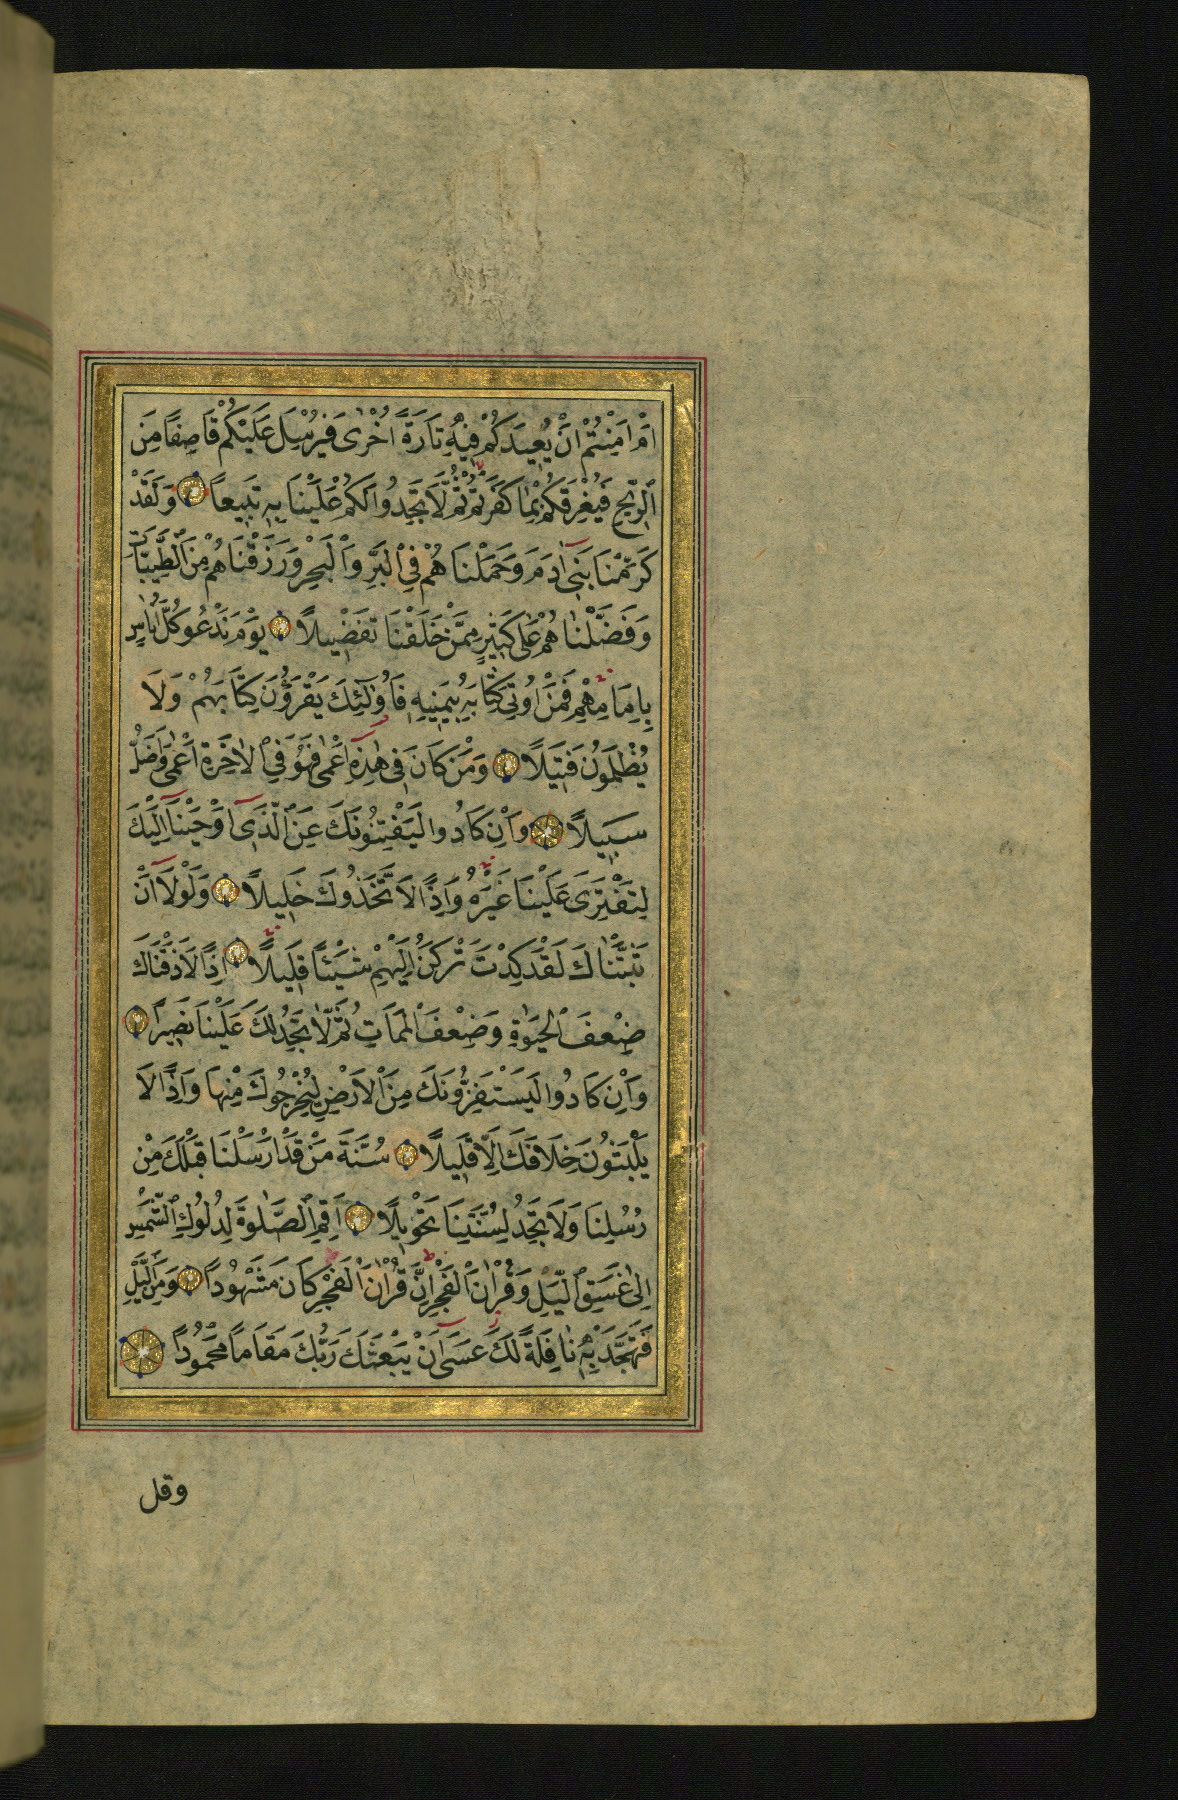 اَمْ اَمِنْتُمْ اَنْ يُعِيدَكُمْ فِيهِ تَارَةً اُخْرٰى فَيُرْسِلَ عَلَيْكُمْ قَاصِفًا مِنَ
الرِّيحِ فَيُغْرِقَكُمْ بِمَا كَفَرْتُمْ ثُمَّ لَا تَجِدُوا لَكُمْ عَلَيْنَا بِهِ تَبِيعًا وَلَقَدْ
كَرَّمْنَا بَنِى اٰدَمَ وَحَمَلْنَاهُمْ فِي الْبَرِّ وَالْبَحْرِ وَرَزَقْنَاهُمْ مِنَ الطَّيِّبَاتِ
وَفَضَّلْنَاهُمْ عَلٰى كَثِيرٍ مِمَّنْ خَلَقْنَا تَفْضِيلًا يَوْمَ نَدْعُو كُلَّ اُنَاسٍ
بِاِمَامِهِمْ فَمَنْ اُوتِىَ كِتَابَهُ بِيَمِينِهِ فَاُولٰئِكَ يَقْرَؤُنَ كِتَابَهُمْ وَلَا
يُظْلَمُونَ فَتِيلًا وَمَنْ كَانَ فِى هٰذِهِ اَعْمٰى فَهُوَ فِي الْاٰخِرَةِ اَعْمٰى وَاَضَلُّ
سَبِيلًا وَاِنْ كَادُوا لَيَفْتِنُونَكَ عَنِ الَّذِى اَوْحَيْنَا اِلَيْكَ
لِتَفْتَرِىَ عَلَيْنَا غَيْرَهُ وَاِذًا لَاتَّخَذُوكَ خَلِيلًا وَلَوْلَا اَنْ
ثَبَّتْنَاكَ لَقَدْ كِدْتَ تَرْكَنُ اِلَيْهِمْ شَيْئًا قَلِيلًا اِذًا لَاَذَقْنَاكَ
ضِعْفَ الْحَيٰوةِ وَضِعْفَ الْمَمَاتِ ثُمَّ لَا تَجِدُ لَكَ عَلَيْنَا نَصِيرًا
وَاِنْ كَادُوا لَيَسْتَفِزُّونَكَ مِنَ الْاَرْضِ لِيُخْرِجُوكَ مِنْهَا وَاِذًا لَا
يَلْبَثُونَ خِلَافَكَ اِلَّا قَلِيلًا سُنَّةَ مَنْ قَدْ اَرْسَلْنَا قَبْلَكَ مِنْ
رُسُلِنَا وَلَا تَجِدُ لِسُنَّتِنَا تَحْوِيلًا اَقِمِ الصَّلٰوةَ لِدُلُوكِ الشَّمْسِ
اِلٰى غَسَقِ الَّيْلِ وَقُرْاٰنَ الْفَجْرِ اِنَّ قُرْاٰنَ الْفَجْرِ كَانَ مَشْهُودًا وَمِنَ الَّيْلِ
فَتَهَجَّدْ بِهِ نَافِلَةً لَكَ عَسٰى اَنْ يَبْعَثَكَ رَبُّكَ مَقَامًا مَحْمُودًا
وقل